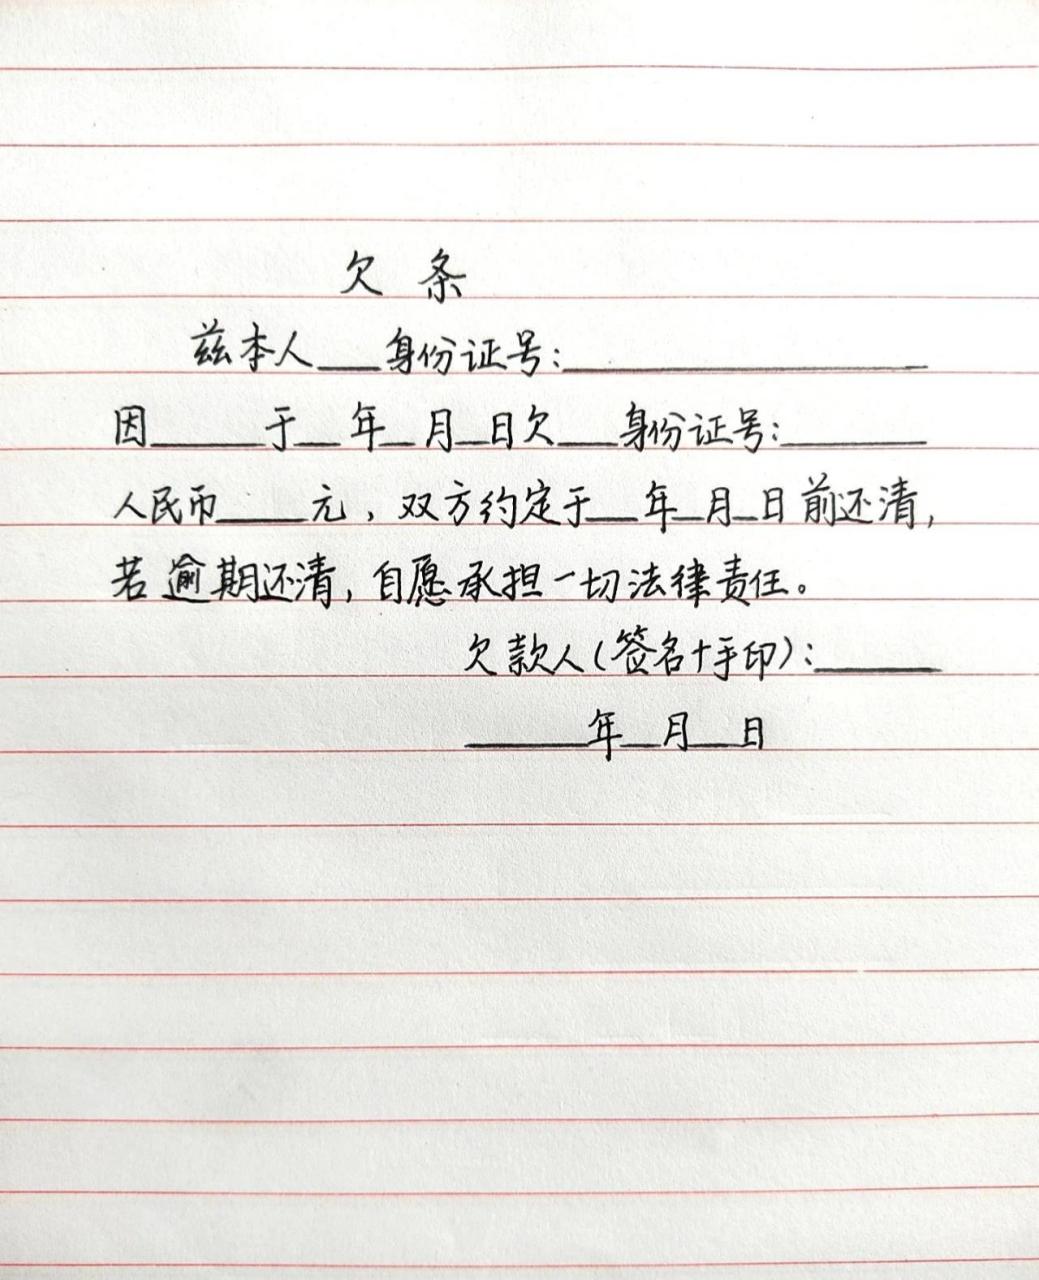 欠条
兹本人___身份证号:__________________
因______于__年_月_日欠___身份证号:_______
人民币____元,双方约定于__年_月_日前还清,
若逾期还清,自愿承担一切法律责任。
欠款人(签名+手印):______
______年__月__日